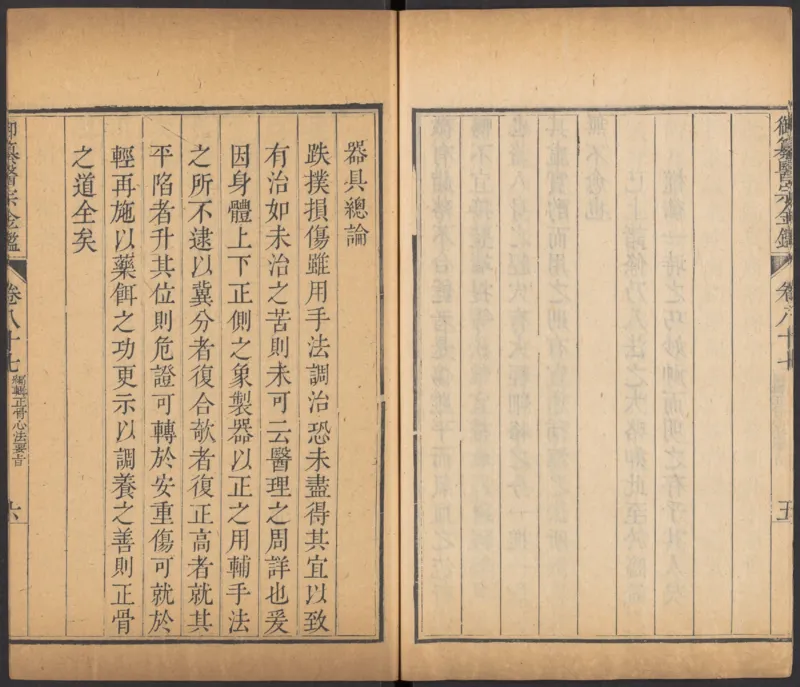 御纂醫宗金鑑
卷八十七
五
器具總論
跌撲損傷雖用手法調治恐未盡得其宜以致
有治如未治之苦則未可云醫理之周詳也爰
因身體上下正側之象製器以正之用輔手法
之所不逮以冀分者復合欹者復正高者就其
平陷者升其位則危證可轉於安重傷可就於
輕再施以藥餌之功更示以調養之善則正骨
之道全矣
御纂醫宗金鑑
卷八十七
編輯正骨心法要旨
六